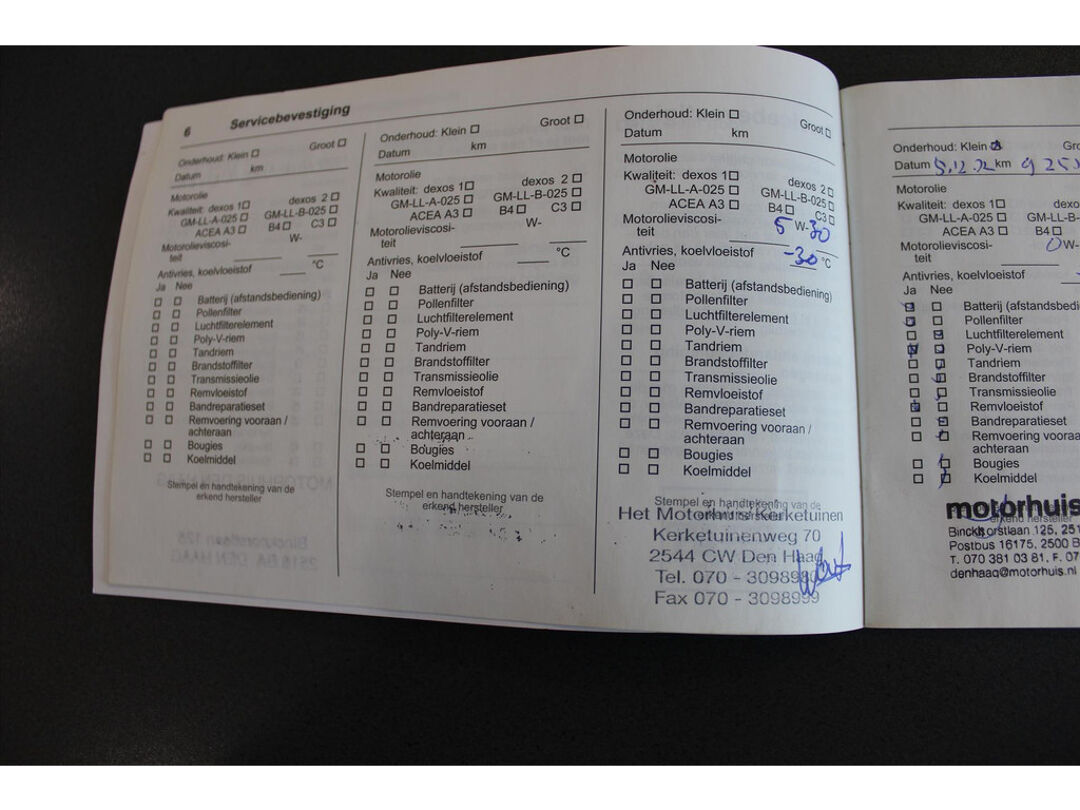 6 Servicebevestiging
Onderhoud: Klein ☐ Groot ☐
Datum km
Motorolie
Kwaliteit: dexos 1 ☐ dexos 2 ☐
GM-LL-A-025 ☐ GM-LL-B-025 ☐
ACEA A3 ☐ B4 ☐ C3 ☐
Motorolieviscosi-
teit W-
Antivries, koelvloeistof °C
Ja Nee
☐ ☐ Batterij (afstandsbediening)
☐ ☐ Pollenfilter
☐ ☐ Luchtfilterelement
☐ ☐ Poly-V-riem
☐ ☐ Tandriem
☐ ☐ Brandstoffilter
☐ ☐ Transmissieolie
☐ ☐ Remvloeistof
☐ ☐ Bandreparatieset
☐ ☐ Remvoering vooraan /
achteraan
☐ ☐ Bougies
☐ ☐ Koelmiddel
Stempel en handtekening van de
erkend hersteller
Onderhoud: Klein ☐ Groot ☐
Datum km
Motorolie
Kwaliteit: dexos 1 ☐ dexos 2 ☐
GM-LL-A-025 ☐ GM-LL-B-025 ☐
ACEA A3 ☐ B4 ☐ C3 ☐
Motorolieviscosi-
teit W-
Antivries, koelvloeistof °C
Ja Nee
☐ ☐ Batterij (afstandsbediening)
☐ ☐ Pollenfilter
☐ ☐ Luchtfilterelement
☐ ☐ Poly-V-riem
☐ ☐ Tandriem
☐ ☐ Brandstoffilter
☐ ☐ Transmissieolie
☐ ☐ Remvloeistof
☐ ☐ Bandreparatieset
☐ ☐ Remvoering vooraan /
achteraan
☐ ☐ Bougies
☐ ☐ Koelmiddel
Stempel en handtekening van de
erkend hersteller
Onderhoud: Klein ☐ Groot ☐
Datum km
Motorolie
Kwaliteit: dexos 1 ☐ dexos 2 ☐
GM-LL-A-025 ☐ GM-LL-B-025 ☐
ACEA A3 ☐ B4 ☐ C3 ☐
Motorolieviscosi-
teit 5 W-30
Antivries, koelvloeistof -30 °C
Ja Nee
☐ ☐ Batterij (afstandsbediening)
☐ ☐ Pollenfilter
☐ ☐ Luchtfilterelement
☐ ☐ Poly-V-riem
☐ ☐ Tandriem
☐ ☐ Brandstoffilter
☐ ☐ Transmissieolie
☐ ☐ Remvloeistof
☐ ☐ Bandreparatieset
☐ ☐ Remvoering vooraan /
achteraan
☐ ☐ Bougies
☐ ☐ Koelmiddel
Stempel en handtekening van de
erkend hersteller
Het Motorhuis Kerketuinen
Kerketuinenweg 70
2544 CW Den Haag
Tel. 070 - 3098980
Fax 070 - 3098999
Onderhoud: Klein
Datum km
Motorolie
Kwaliteit: dexos 1 ☐
GM-LL-A-025 ☐ GM-LL-B-
ACEA A3 ☐ B4 ☐
Motorolieviscosi-
teit 0 W-
Antivries, koelvloeistof
Ja Nee
Batterij (afstandsbedi
Pollenfilter
Luchtfilterelement
Poly-V-riem
Tandriem
Brandstoffilter
Transmissieolie
Remvloeistof
Bandreparatieset
Remvoering vooraa
achteraan
Bougies
Koelmiddel
motorhuis
erkend hersteller
Binckhorstlaan 125, 251
Postbus 16175, 2500 B
T. 070 381 03 81, F. 07
denhaag@motorhuis.nl